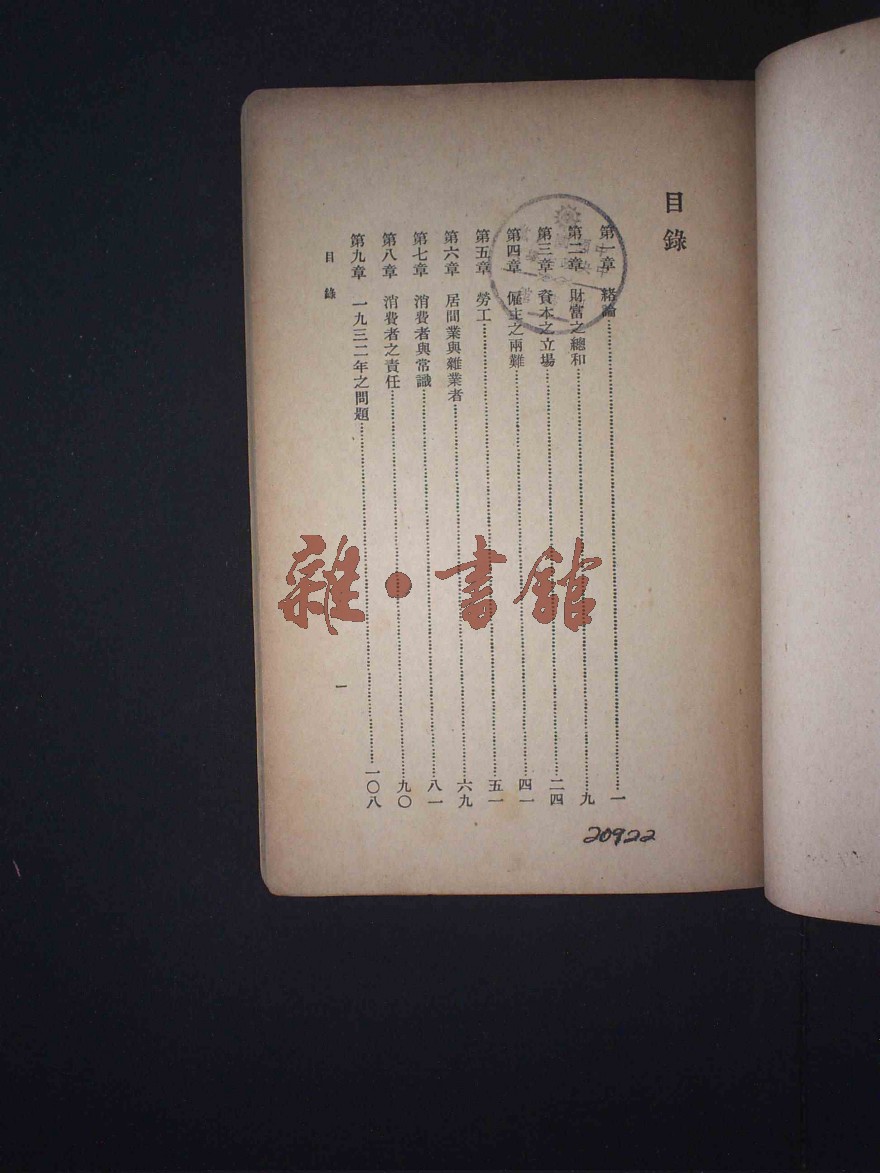 目錄
第一章 緒論……一
第二章 財富之總和……九
第三章 資本之立場……二四
第四章 僱主之兩難……四一
第五章 勞工……五一
第六章 居間業與雜業者……六九
第七章 消費者與常識……八一
第八章 消費者之責任……九〇
第九章 一九三二年之問題……一〇八
目錄
一
20922
雜·書館